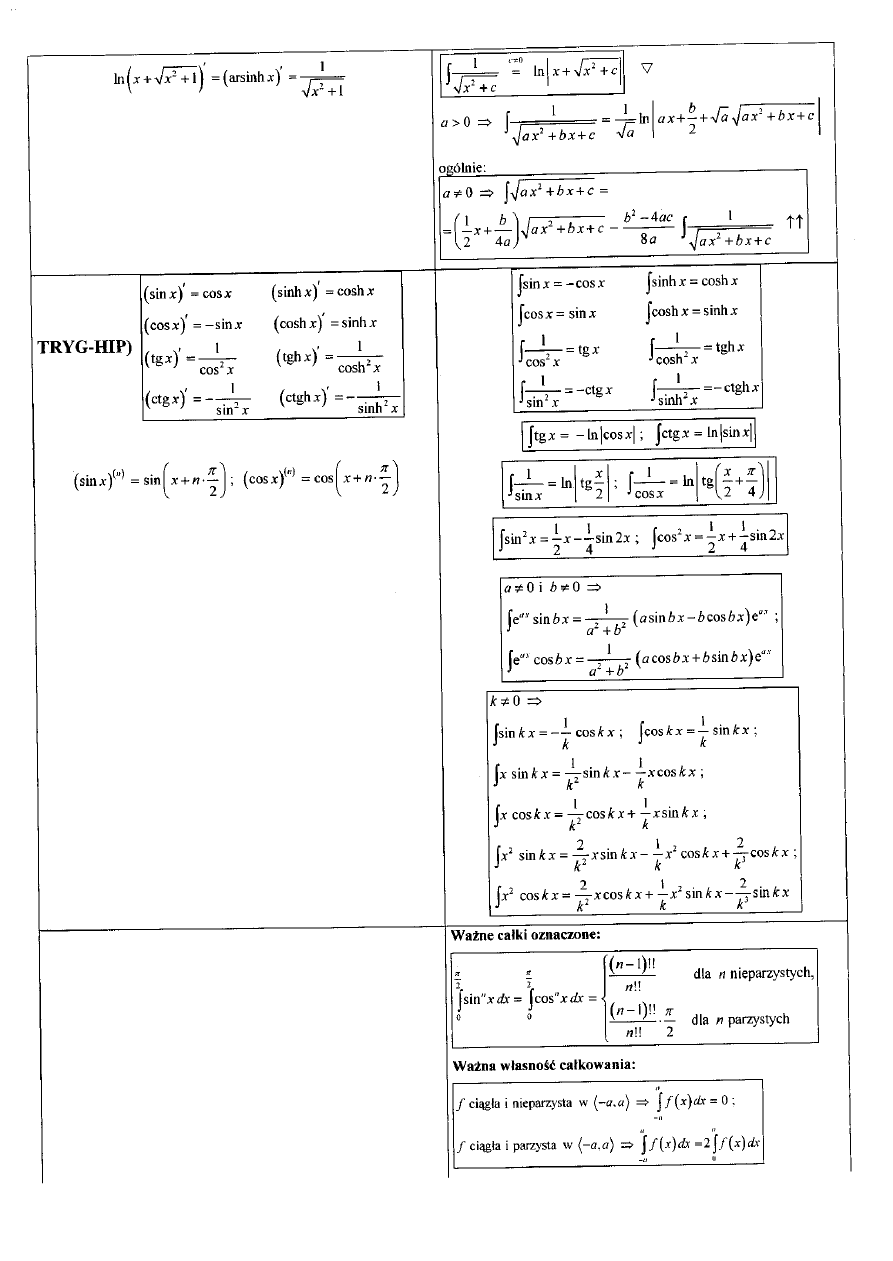 ln(x + √(x² + 1))′ = (arsinh x)′ = 1/√(x² + 1)
∫ 1/√(x² + c) =^(c≠0) ln|x + √(x² + c)| ▽
a > 0 ⇒ ∫ 1/√(ax² + bx + c) = 1/√a ln|ax + b/2 + √a √(ax² + bx + c)|
ogólnie:
a ≠ 0 ⇒ ∫√(ax² + bx + c) =
= (1/2 x + b/4a)√(ax² + bx + c) − (b² − 4ac)/8a ∫ 1/√(ax² + bx + c) ↑↑
TRYG-HIP)
(sin x)′ = cos x (sinh x)′ = cosh x
(cos x)′ = −sin x (cosh x)′ = sinh x
(tg x)′ = 1/cos² x (tgh x)′ = 1/cosh² x
(ctg x)′ = − 1/sin² x (ctgh x)′ = − 1/sinh² x
(sin x)⁽ⁿ⁾ = sin(x + n·π/2) ; (cos x)⁽ⁿ⁾ = cos(x + n·π/2)
∫sin x = −cos x ∫sinh x = cosh x
∫cos x = sin x ∫cosh x = sinh x
∫ 1/cos² x = tg x ∫ 1/cosh² x = tgh x
∫ 1/sin² x = −ctg x ∫ 1/sinh² x = −ctgh x
∫tg x = − ln|cos x| ; ∫ctg x = ln|sin x|
∫ 1/sin x = ln|tg x/2| ; ∫ 1/cos x = ln|tg(x/2 + π/4)|
∫sin² x = 1/2 x − 1/4 sin 2x ; ∫cos² x = 1/2 x + 1/4 sin 2x
a ≠ 0 i b ≠ 0 ⇒
∫e^(ax) sin bx = 1/(a² + b²) (a sin bx − b cos bx)e^(ax) ;
∫e^(ax) cos bx = 1/(a² + b²) (a cos bx + b sin bx)e^(ax)
k ≠ 0 ⇒
∫sin kx = − 1/k cos kx ; ∫cos kx = 1/k sin kx ;
∫x sin kx = 1/k² sin kx − 1/k x cos kx ;
∫x cos kx = 1/k² cos kx + 1/k x sin kx ;
∫x² sin kx = 2/k² x sin kx − 1/k x² cos kx + 2/k³ cos kx ;
∫x² cos kx = 2/k² x cos kx + 1/k x² sin kx − 2/k³ sin kx
Ważne całki oznaczone:
∫₀^(π/2) sinⁿ x dx = ∫₀^(π/2) cosⁿ x dx = { (n−1)!!/n!! dla n nieparzystych,
(n−1)!!/n!! · π/2 dla n parzystych
Ważna własność całkowania:
f ciągła i nieparzysta w ⟨−a,a⟩ ⇒ ∫₋ₐ^a f(x)dx = 0 ;
f ciągła i parzysta w ⟨−a,a⟩ ⇒ ∫₋ₐ^a f(x)dx = 2∫₀^a f(x)dx